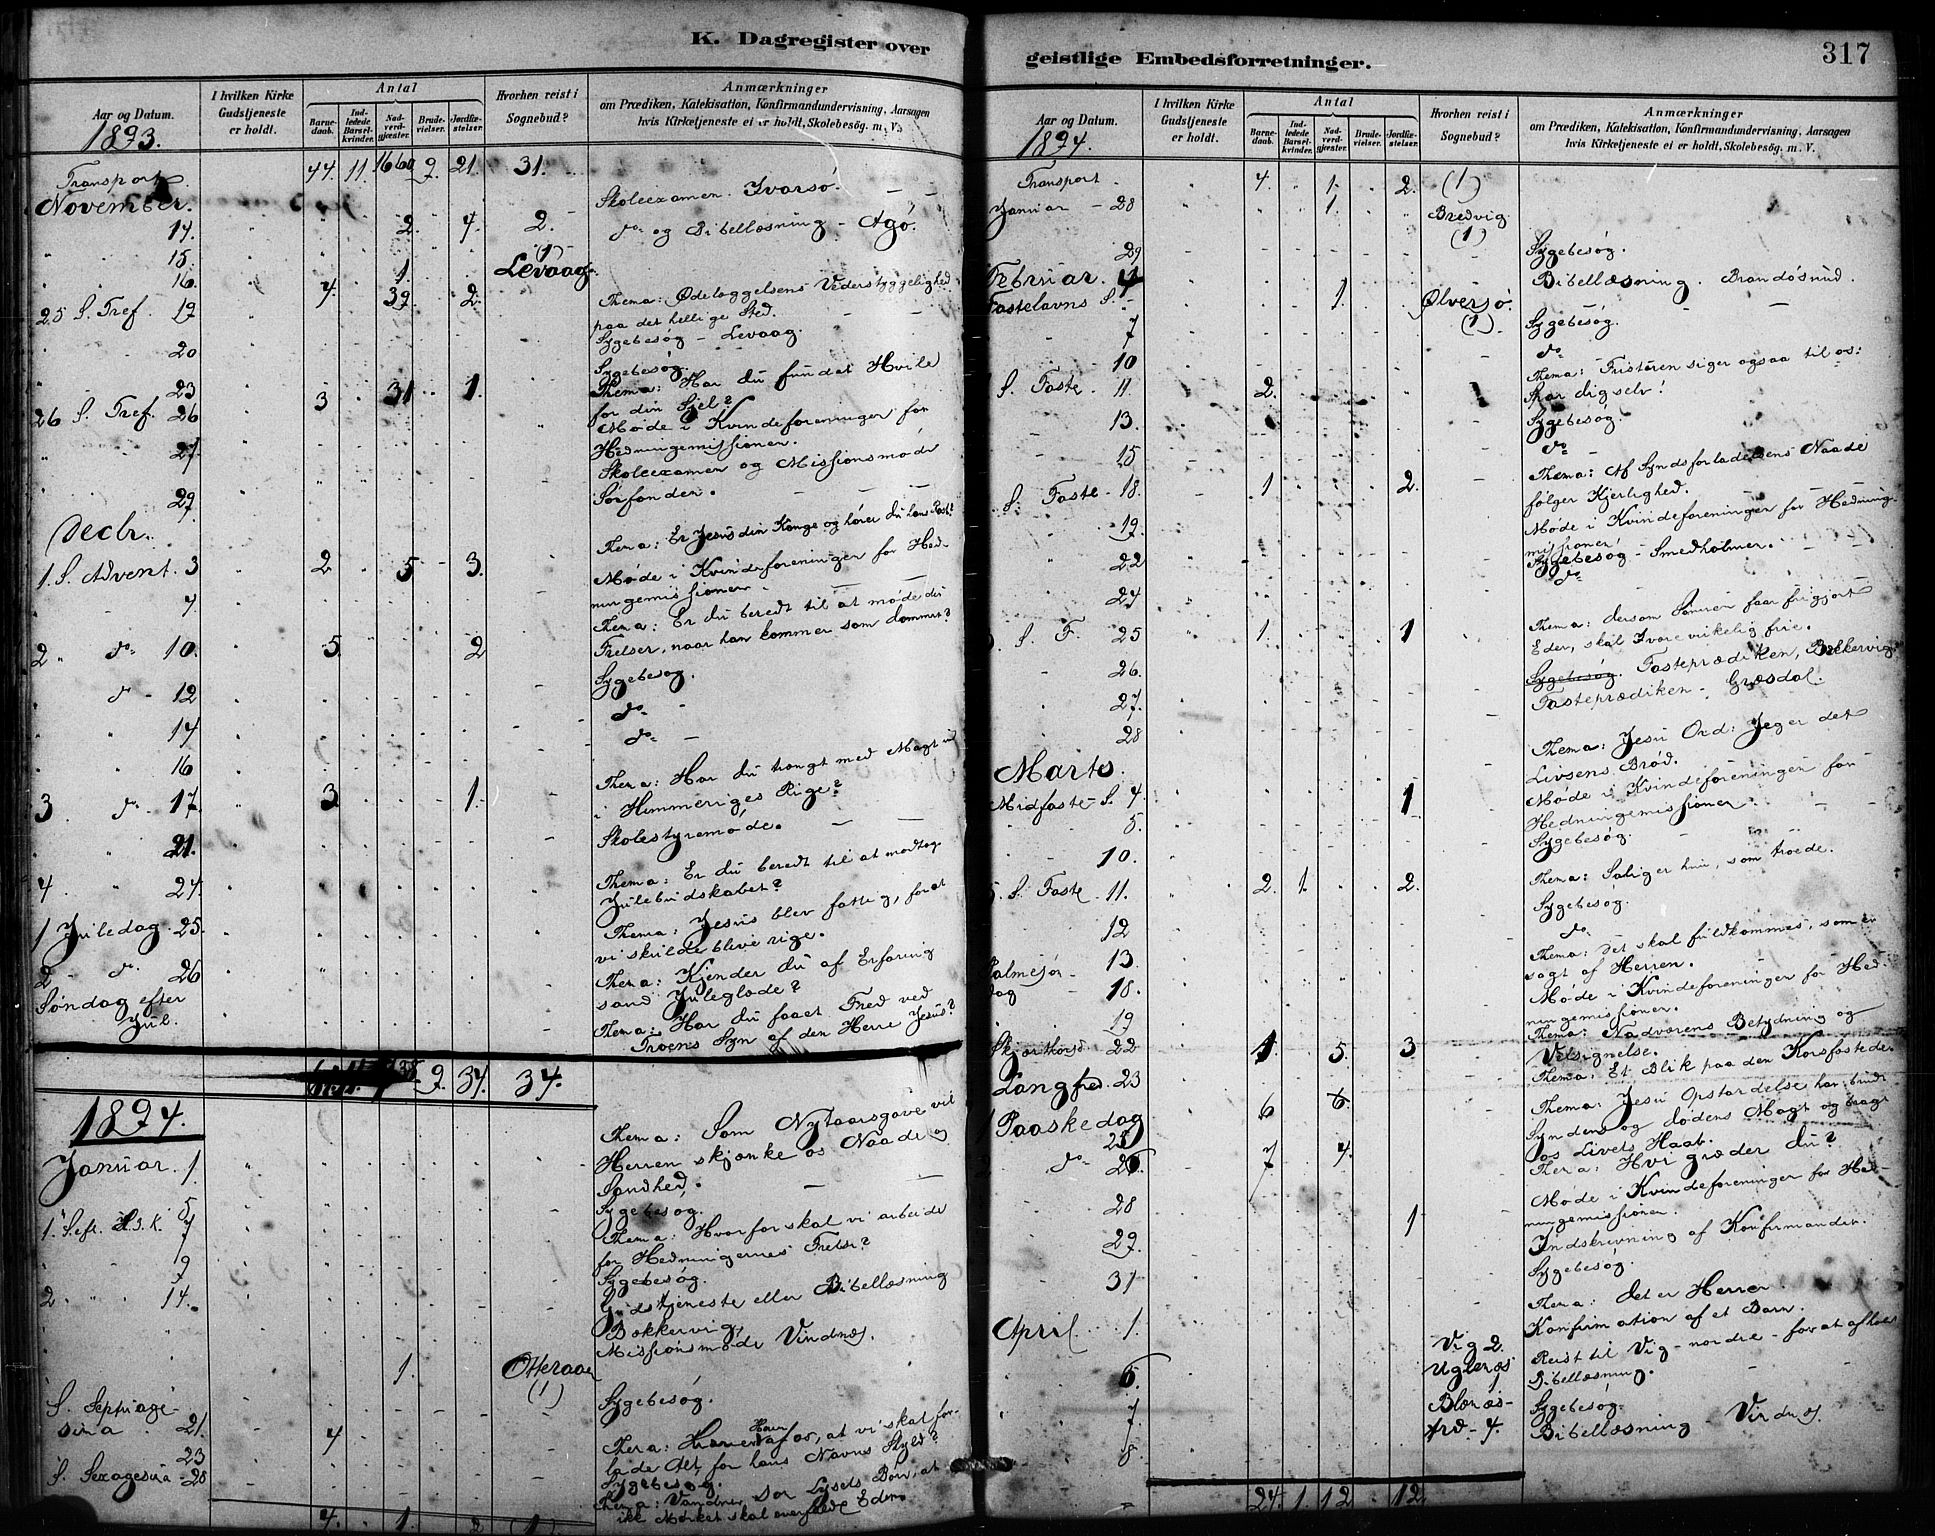 K. Dagregister over
Aar og Datum.
I hvilken Kirke Gudstjeneste er holdt.
Antal
Barnedaab.
Indledede Barselkvinder.
Nadverdgjæster.
Brudevielser.
Jordfæstelser.
Hvorhen reist i Sognebud?
Anmærkninger
om Prædiken, Katekisation, Konfirmandundervisning, Aarsagen
hvis Kirketjeneste ei er holdt, Skolebesøg. m. V.
1893.
Transport 44 11 1660 9. 21. 31.
November.
Skoleexamen. Ivarsø.
14. 2. 4. 2. do og Bibellæsning - Agø.
15. (1)
16. 1. Levaag.
25 S. Tref. 19 4. 39. 2. Thema: Ødelæggelsens Vederstyggelighed
paa det hellige Sted.
20 Sygebesøg - Levaag.
23 Sygebesøg.
26 S. Tref. 26 3 31 1. Thema: Har du fundet Hvile
for din Sjel?
27. Møde i Kvindeforeninger for
Hedningemissionen.
29. Skoleexamen og Missionsmøde
Decbr.
1. S. Advent. 3 2 5 3. Thema: Er Jesus din Konge og hører du hans Røst?
4 Møde i Kvindeforeninger for Hed-
ningemissionen.
2 " do 10. 5. 2 Thema: Er du beredt til at møde din
Frelser, naar han kommer som dommer?
do - 12 Sygebesøg.
14 do
16 do
3 do 17. 3 1. Thema: Har du trængt med Magt ind
i Himmeriges Rige?
21. Skolestyremøde.
4. " 24. Thema: Er du beredt til at modtage
Julebudskabet?
1 Juledag 25. Thema: Jesus blev fattig, forat
vi skulde blive rige.
2 - do 26 Thema: Kjender du af Erfaring
sand Juleglæde?
Søndag efter
Jul. Thema: Har du faaet Fred ved
Troens Syn af den Herre Jesus?
9. 34. 34.
1894.
Januar. 1. Thema: Som Nytaarsgave vil
Herren skjænke os Naade og
Sandhed.
5 Sygebesøg.
1. S. eft. H.3.K. 7 Thema: Hvorfor skal vi arbeide
for Hedningernes Frelse?
9 Sygebesøg.
2 " " 14. Gudstjeneste eller Bibellæsning
Bekkervig,
Missionsmøde Vindnæs.
1. Otteraaen
(1)
Sygebesøg.
S. Septuage-
sima 21. 4 Thema: af os, at vi skal for-
lade Alt for hans Navns Skyld?
23 Sygebesøg.
S. Sexagesima - 28 Thema: Vandrer som Lysets Børn, at
ikke Mørket skal overfalde Eder.
4. 1. 2 (1)
geistlige Embedsforretninger.
317
Aar og Datum.
I hvilken Kirke Gudstjeneste er holdt.
Antal
Barnedaab.
Indledede Barselkvinder.
Nadverdgjæster.
Brudevielser.
Jordfæstelser.
Hvorhen reist i Sognebud?
Anmærkninger
om Prædiken, Katekisation, Konfirmandundervisning, Aarsagen
hvis Kirketjeneste ei er holdt, Skolebesøg. m. V.
1894.
Transport 4. 1. 2. (1)
Januar - 28 1. Bredvig
(1)
29 Sygebesøg.
Februar. 4 Bibellæsning. Brandøsund.
Fastelavns S. 1. Ølversø.
(1)
7 Sygebesøg.
10 do
S. Faste. 11. 2. Thema: Fristeren siger ogsaa til os:
Spar dig selv!
13. Sygebesøg.
15 do
S. Faste. 18. 1. 2. Thema: Af Syndsforladelsens Naade
følger Kjerlighed.
19. Møde i Kvindeforeninger for Hedning-
missionen.
22 Sygebesøg - Smedholmen.
24 do
S. F. 25 1. 1 Thema: dersom Sønnen faar frigjort
Eder, skal I være virkelig frie.
26. Sygebesøg. Fasteprædiken, Bekkervig.
27. Fasteprædiken - Græsdal.
28
Marts. Thema: Jesu Ord: Jeg er det
Livsens Brød.
Midfaste S. 4. 1 Møde i Kvindeforeningen for
Hedningemissionen
5. Sygebesøg.
10. Thema: Salig er hun, som troede.
5. S. Faste. 11. 2. 1. 2. Sygebesøg.
12 do
13. Thema: det skal fuldkommes, som er
sagt af Herren.
Palmesøn-
dag - 18. Møde i Kvindeforeninger for Hed-
ningemissionen.
19
22 1 5. 3 Thema: Nadverens Betydning og
Velsignelse.
Langfred. 23 Thema: Et Blik paa den Korsfæstede.
Paaskedag
25 6 6. Thema: Jesu Opstandelse har brudt
Syndens og dødens Magt og bragt
os Livets Haab.
do 26 7 4. Thema: Hvi græder du?
28 Møde i Kvindeforeninger for Hed-
ningemissionen.
29. 1 Indskrivning af Konfirmander.
31 Sygebesøg.
April. 1. Thema: det er Herren.
Konfirmation af et Barn.
6. Vig 2. Reist til Vig - nordre - for at afholde
Uglenæs
1 Bibellæsning.
7. Blænæs- Sygebesøg.
8 4. Bibellæsning - Vindnæs.
24. 1. 12 12.